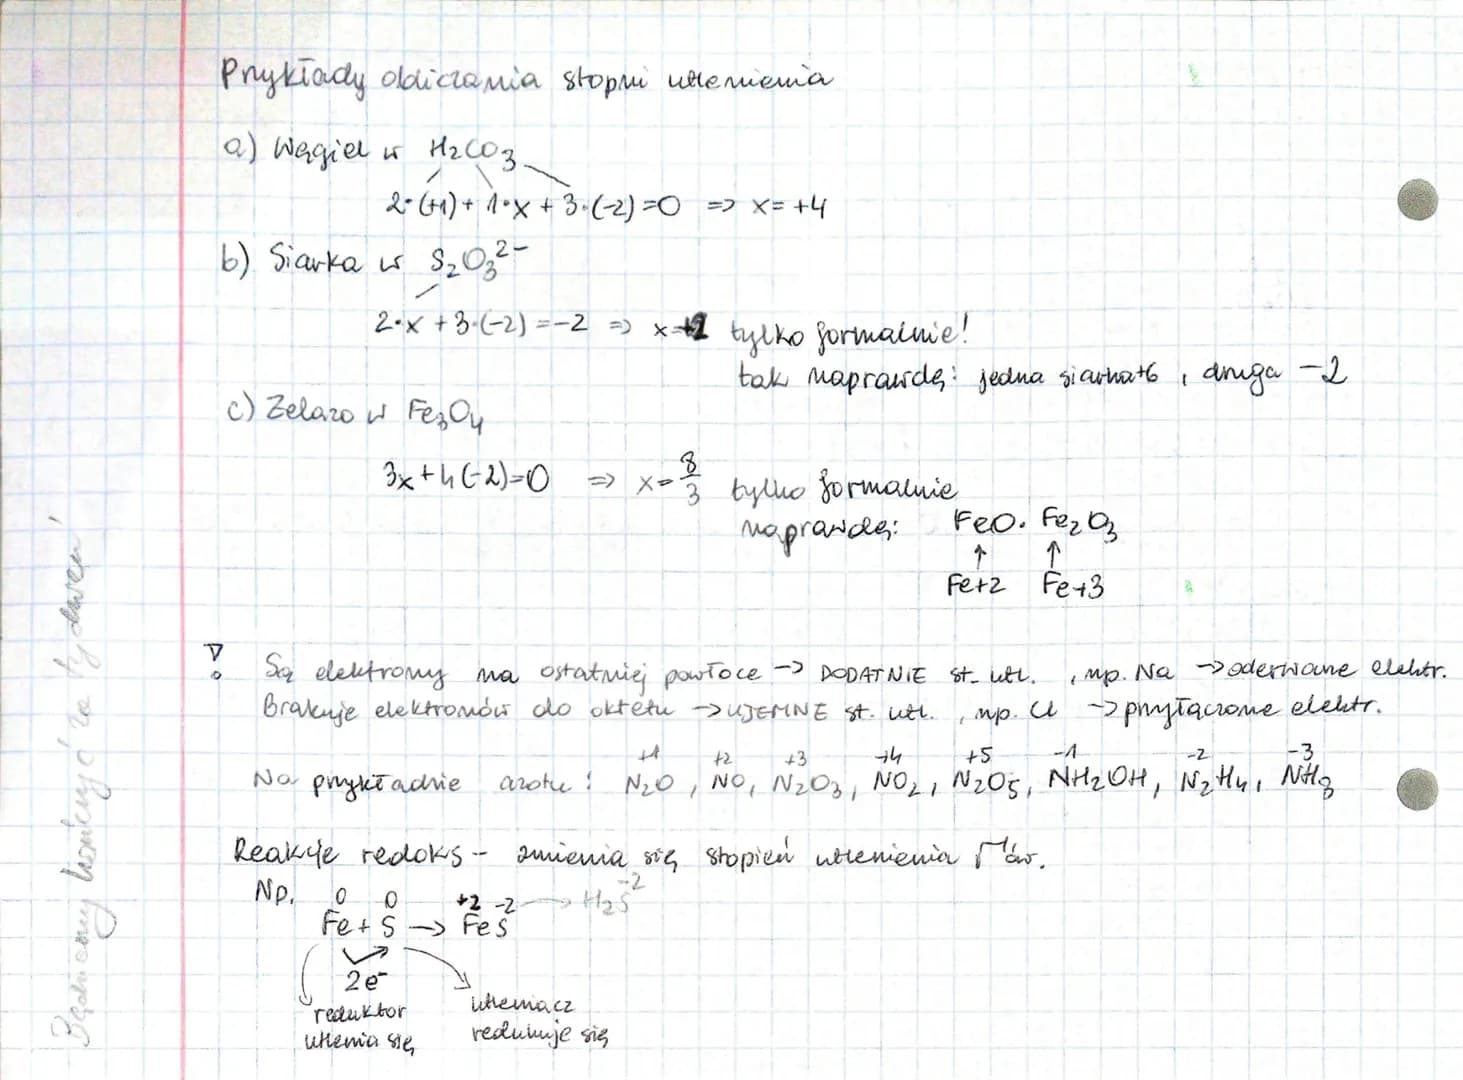 Przykłady obliczania stopni utlenienia
a) Węgiel w H₂CO₃
2·(+1) + 1·x + 3·(-2) = 0 => x = +4
b) Siarka w S₂O₃²⁻
2·x + 3·(-2) = -2 => x = +2 tylko formalnie!
tak naprawdę: jedna siarka +6, druga -2
c) Żelazo w Fe₃O₄
3x + 4(-2) = 0 => x = 8/3 tylko formalnie
naprawdę: FeO · Fe₂O₃
↑ ↑
Fe+2 Fe+3
! Są elektrony na ostatniej powłoce -> DODATNIE st. utl. , np. Na -> oderwane elektr.
Brakuje elektronów do oktetu -> UJEMNE st. utl. , np. Cl -> przyłączone elektr.
+1 +2 +3 +4 +5 -1 -2 -3
Na przykładzie azotu: N₂O, NO, N₂O₃, NO₂, N₂O₅, NH₂OH, N₂H₄, NH₃
Reakcje redoks - zmienia się stopień utlenienia
Np. 0 0 +2 -2 -2
Fe + S -> FeS -> H₂S
2e⁻
reduktor
utlenia się
utleniacz
redukuje się
Będziemy kończyć za tydzień